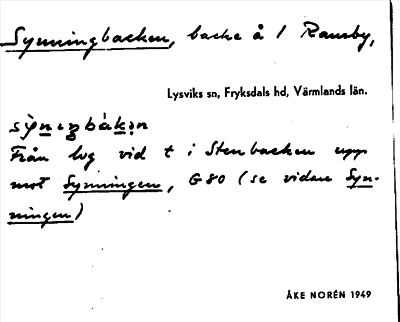 Synningbacken, backe å 1 Ransby,
Lysviks sn, Fryksdals hd, Värmlands län.
sỳnɩŋbákən
Från lvg vid t i Stenbacken upp
mot Synningen, G80 (se vidare Syn-
ningen)
ÅKE NORÉN 1949